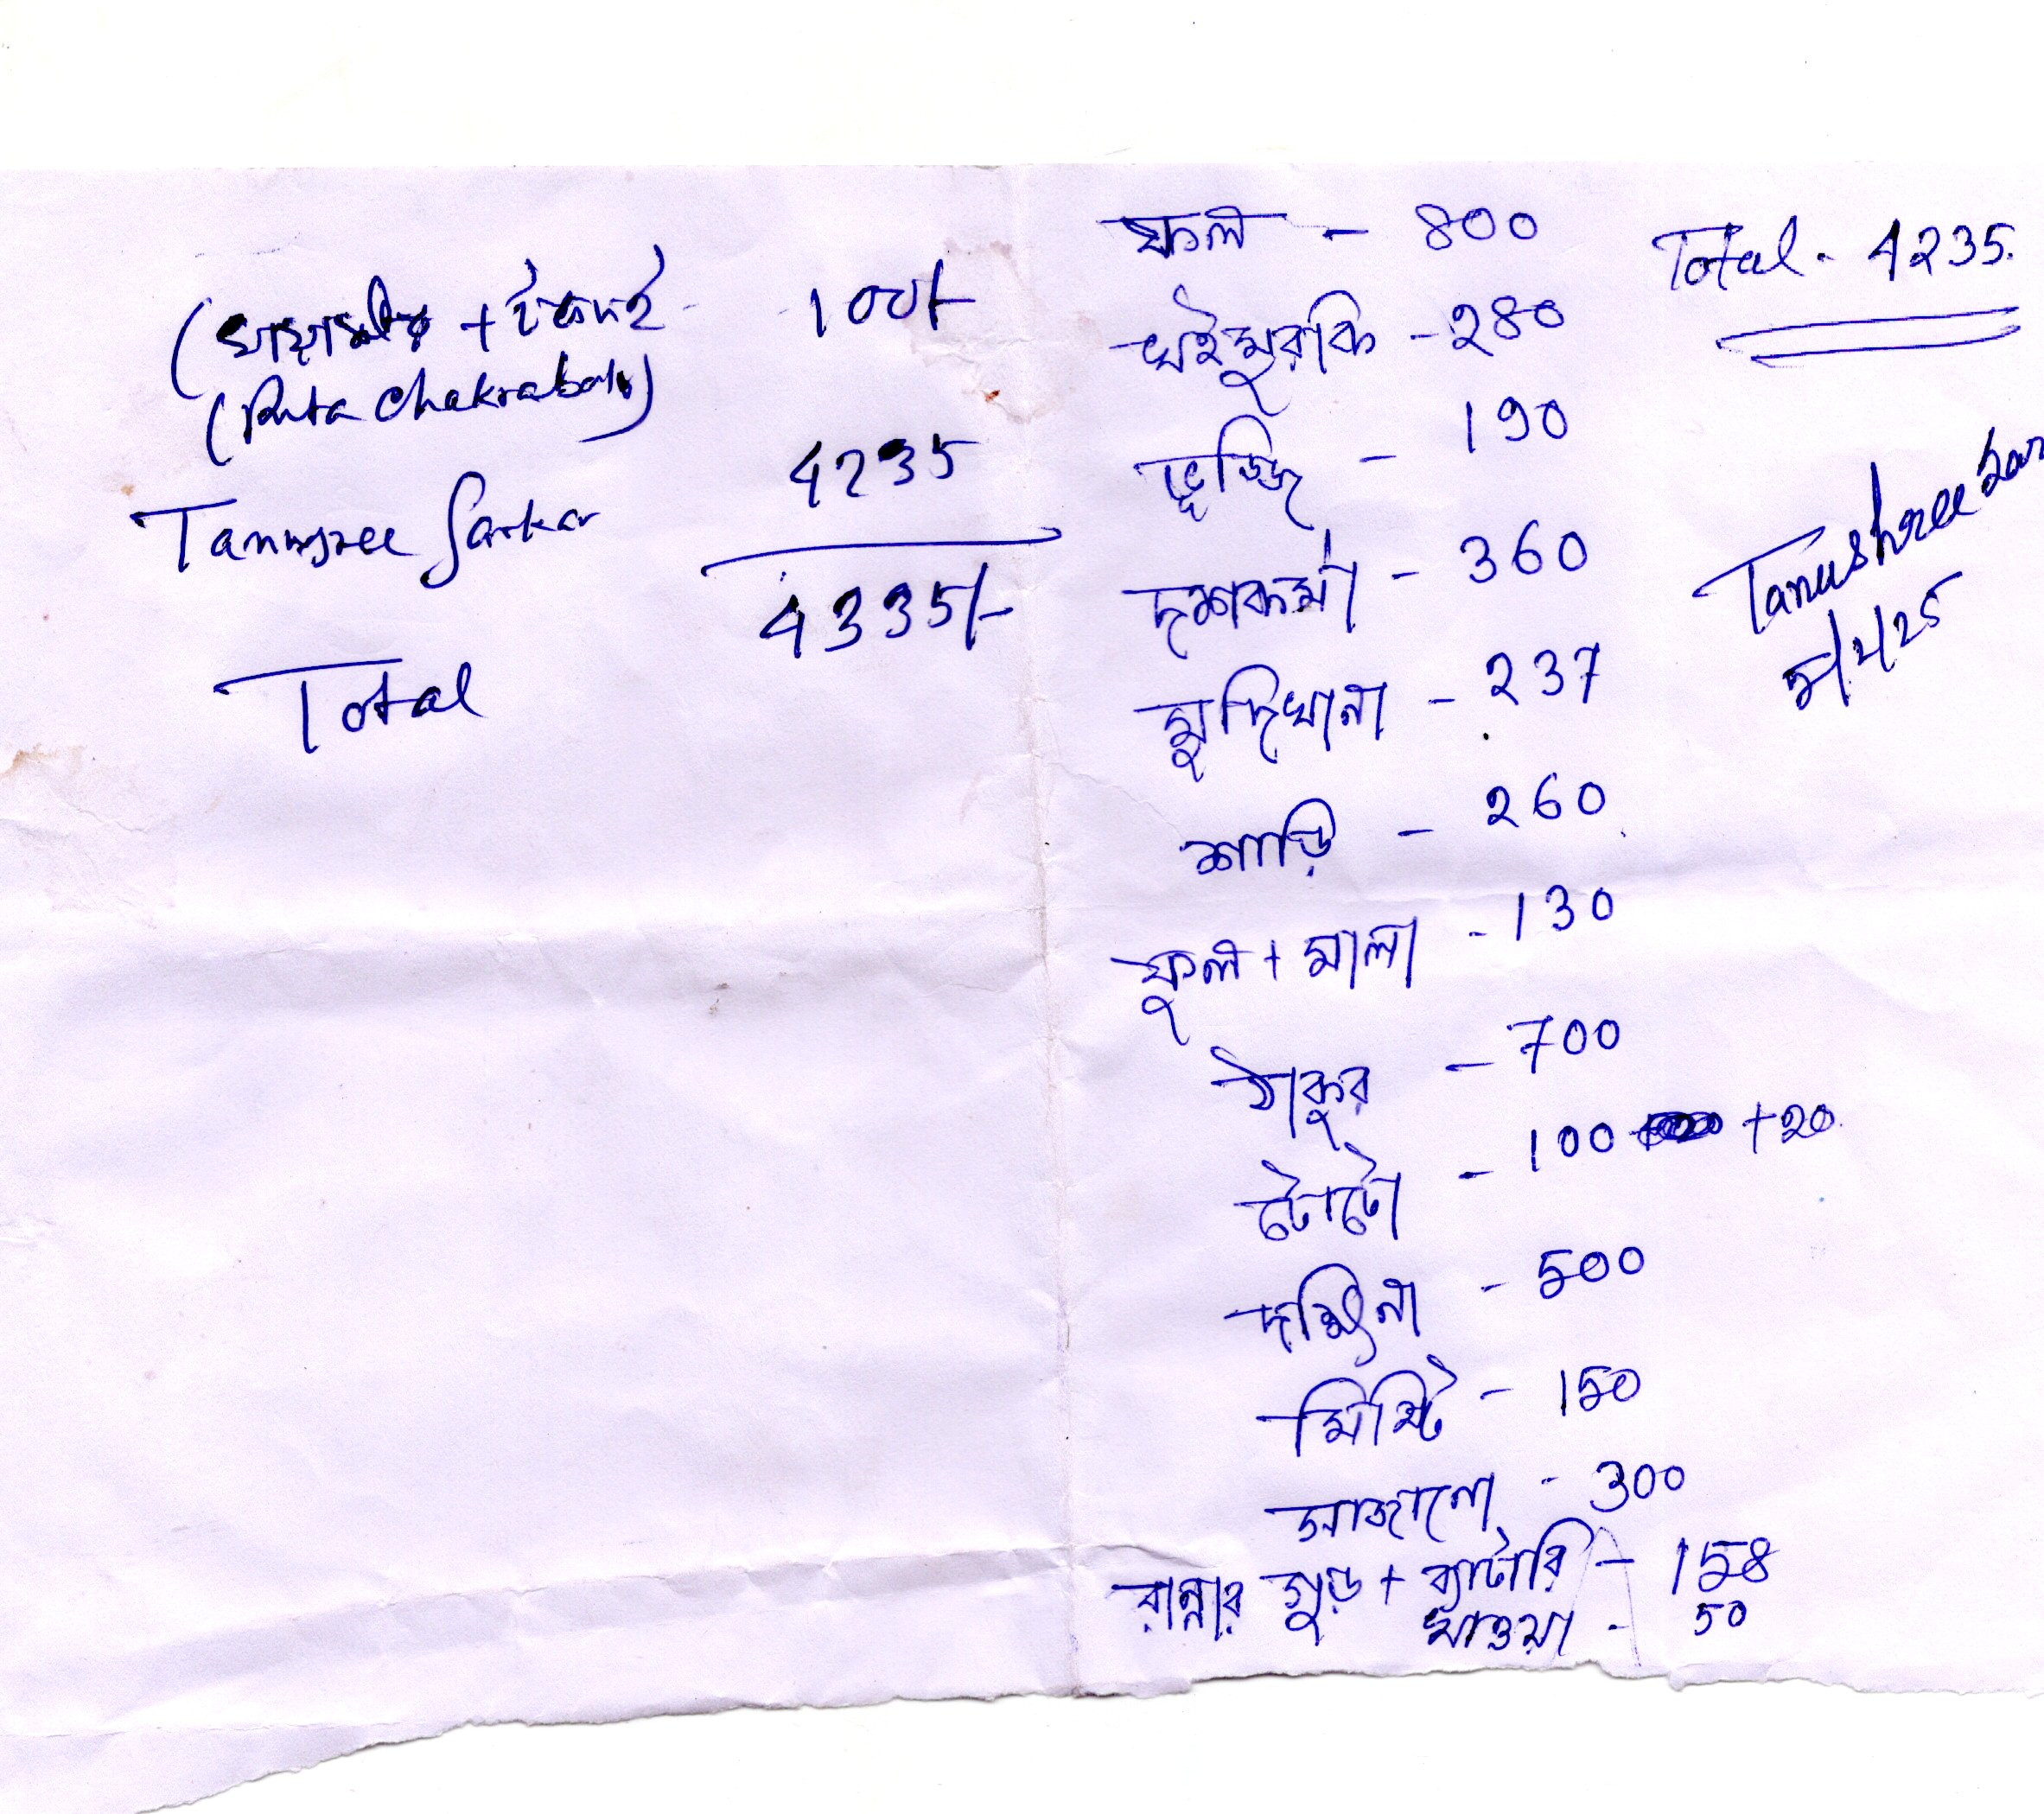 ( + - 100/-
( Chakraborty)
Tanusree Sarkar 4235
4335/-
Total
ফল - 800
খইমুরকি - 280
ভুজ্জি - 190
দশকর্মা - 360
মুদিখানা - 237
শাড়ি - 260
ফুল + মালা - 130
ঠাকুর - 700
টোটো - 100 +20
দক্ষিনা - 500
মিষ্টি - 150
সাজানো - 300
রান্নার গুড় + ব্যাটারি - 158
খাওয়া - 50
Total - 4235.
Tanushree Sar
5/2/25